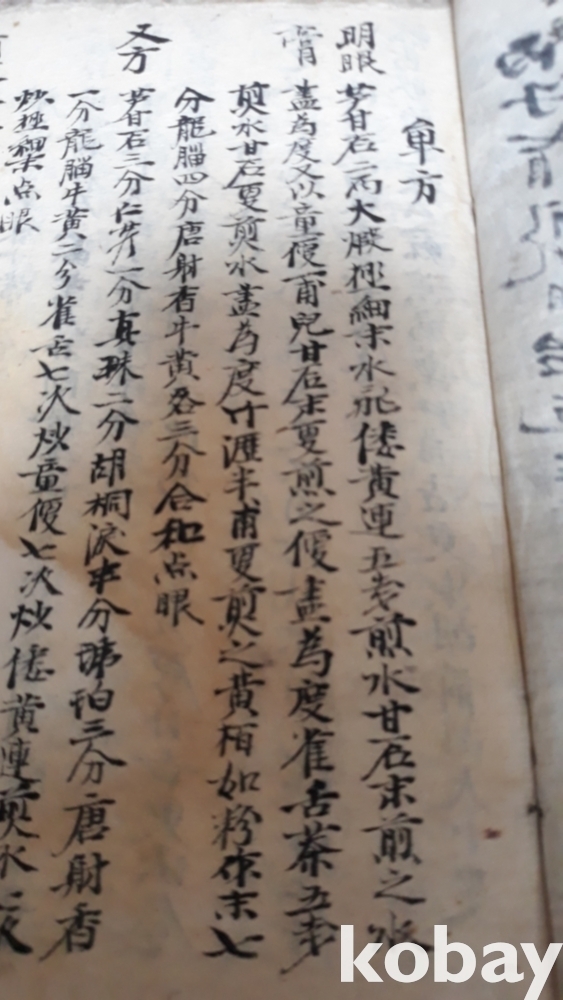 单方
明眼 芦甘石二兩大煅極細末水飛倭黃連五戔煎水甘石末煎之水
膏 盡為度又以童便一甫兒甘石末更煎之便盡為度雀舌茶五戔
煎水甘石更煎水盡為度竹瀝半甫更煎之黃栢如粉作末七
分龍腦四分唐射香牛黃各三分合和点眼
又方 芦甘石三分仁一分真珠二分胡桐淚半分琥珀三分唐射香
一分龍腦牛黃二分雀舌七次炒童便七次炒倭黃連煎水七
炒極細末点眼
kobay